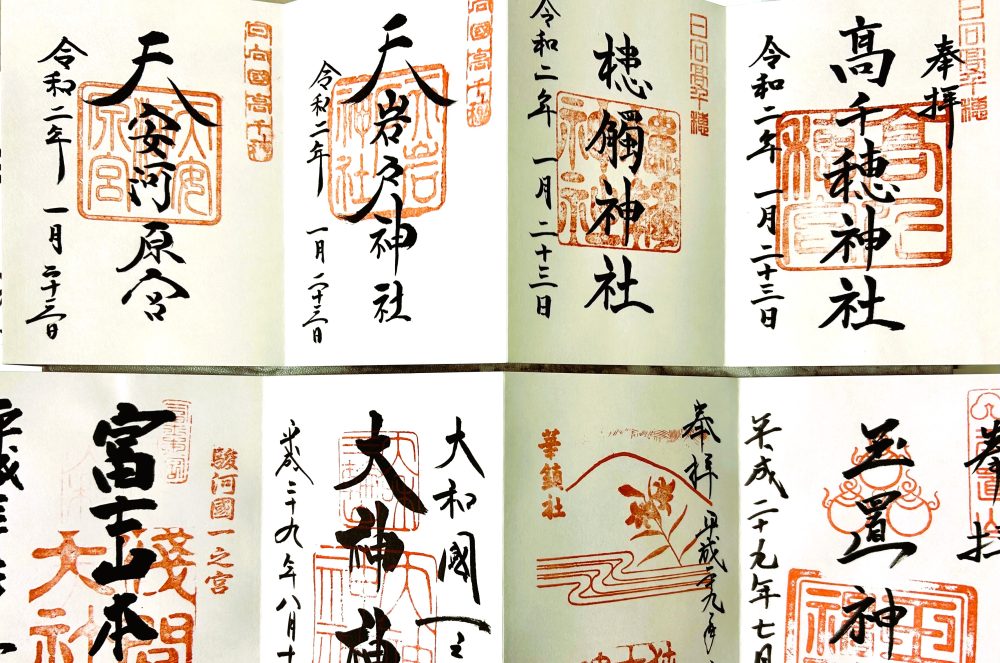 奉拝
髙千穂神社
令和二年 一月二十三日
日向高千穂
槵觸神社
令和二年 一月二十三日
日向國高千穂
天岩戸神社
令和二年 一月二十三日
日向國高千穂
天安河原宮
令和二年 一月二十三日
奉拝
玉置神
平成二十九年七月
奉拝 平成二九年
華鎮社
大和國一之
大神神
平成二十九年八月十
駿河國一之宮
富士本
淺間
大社
平成